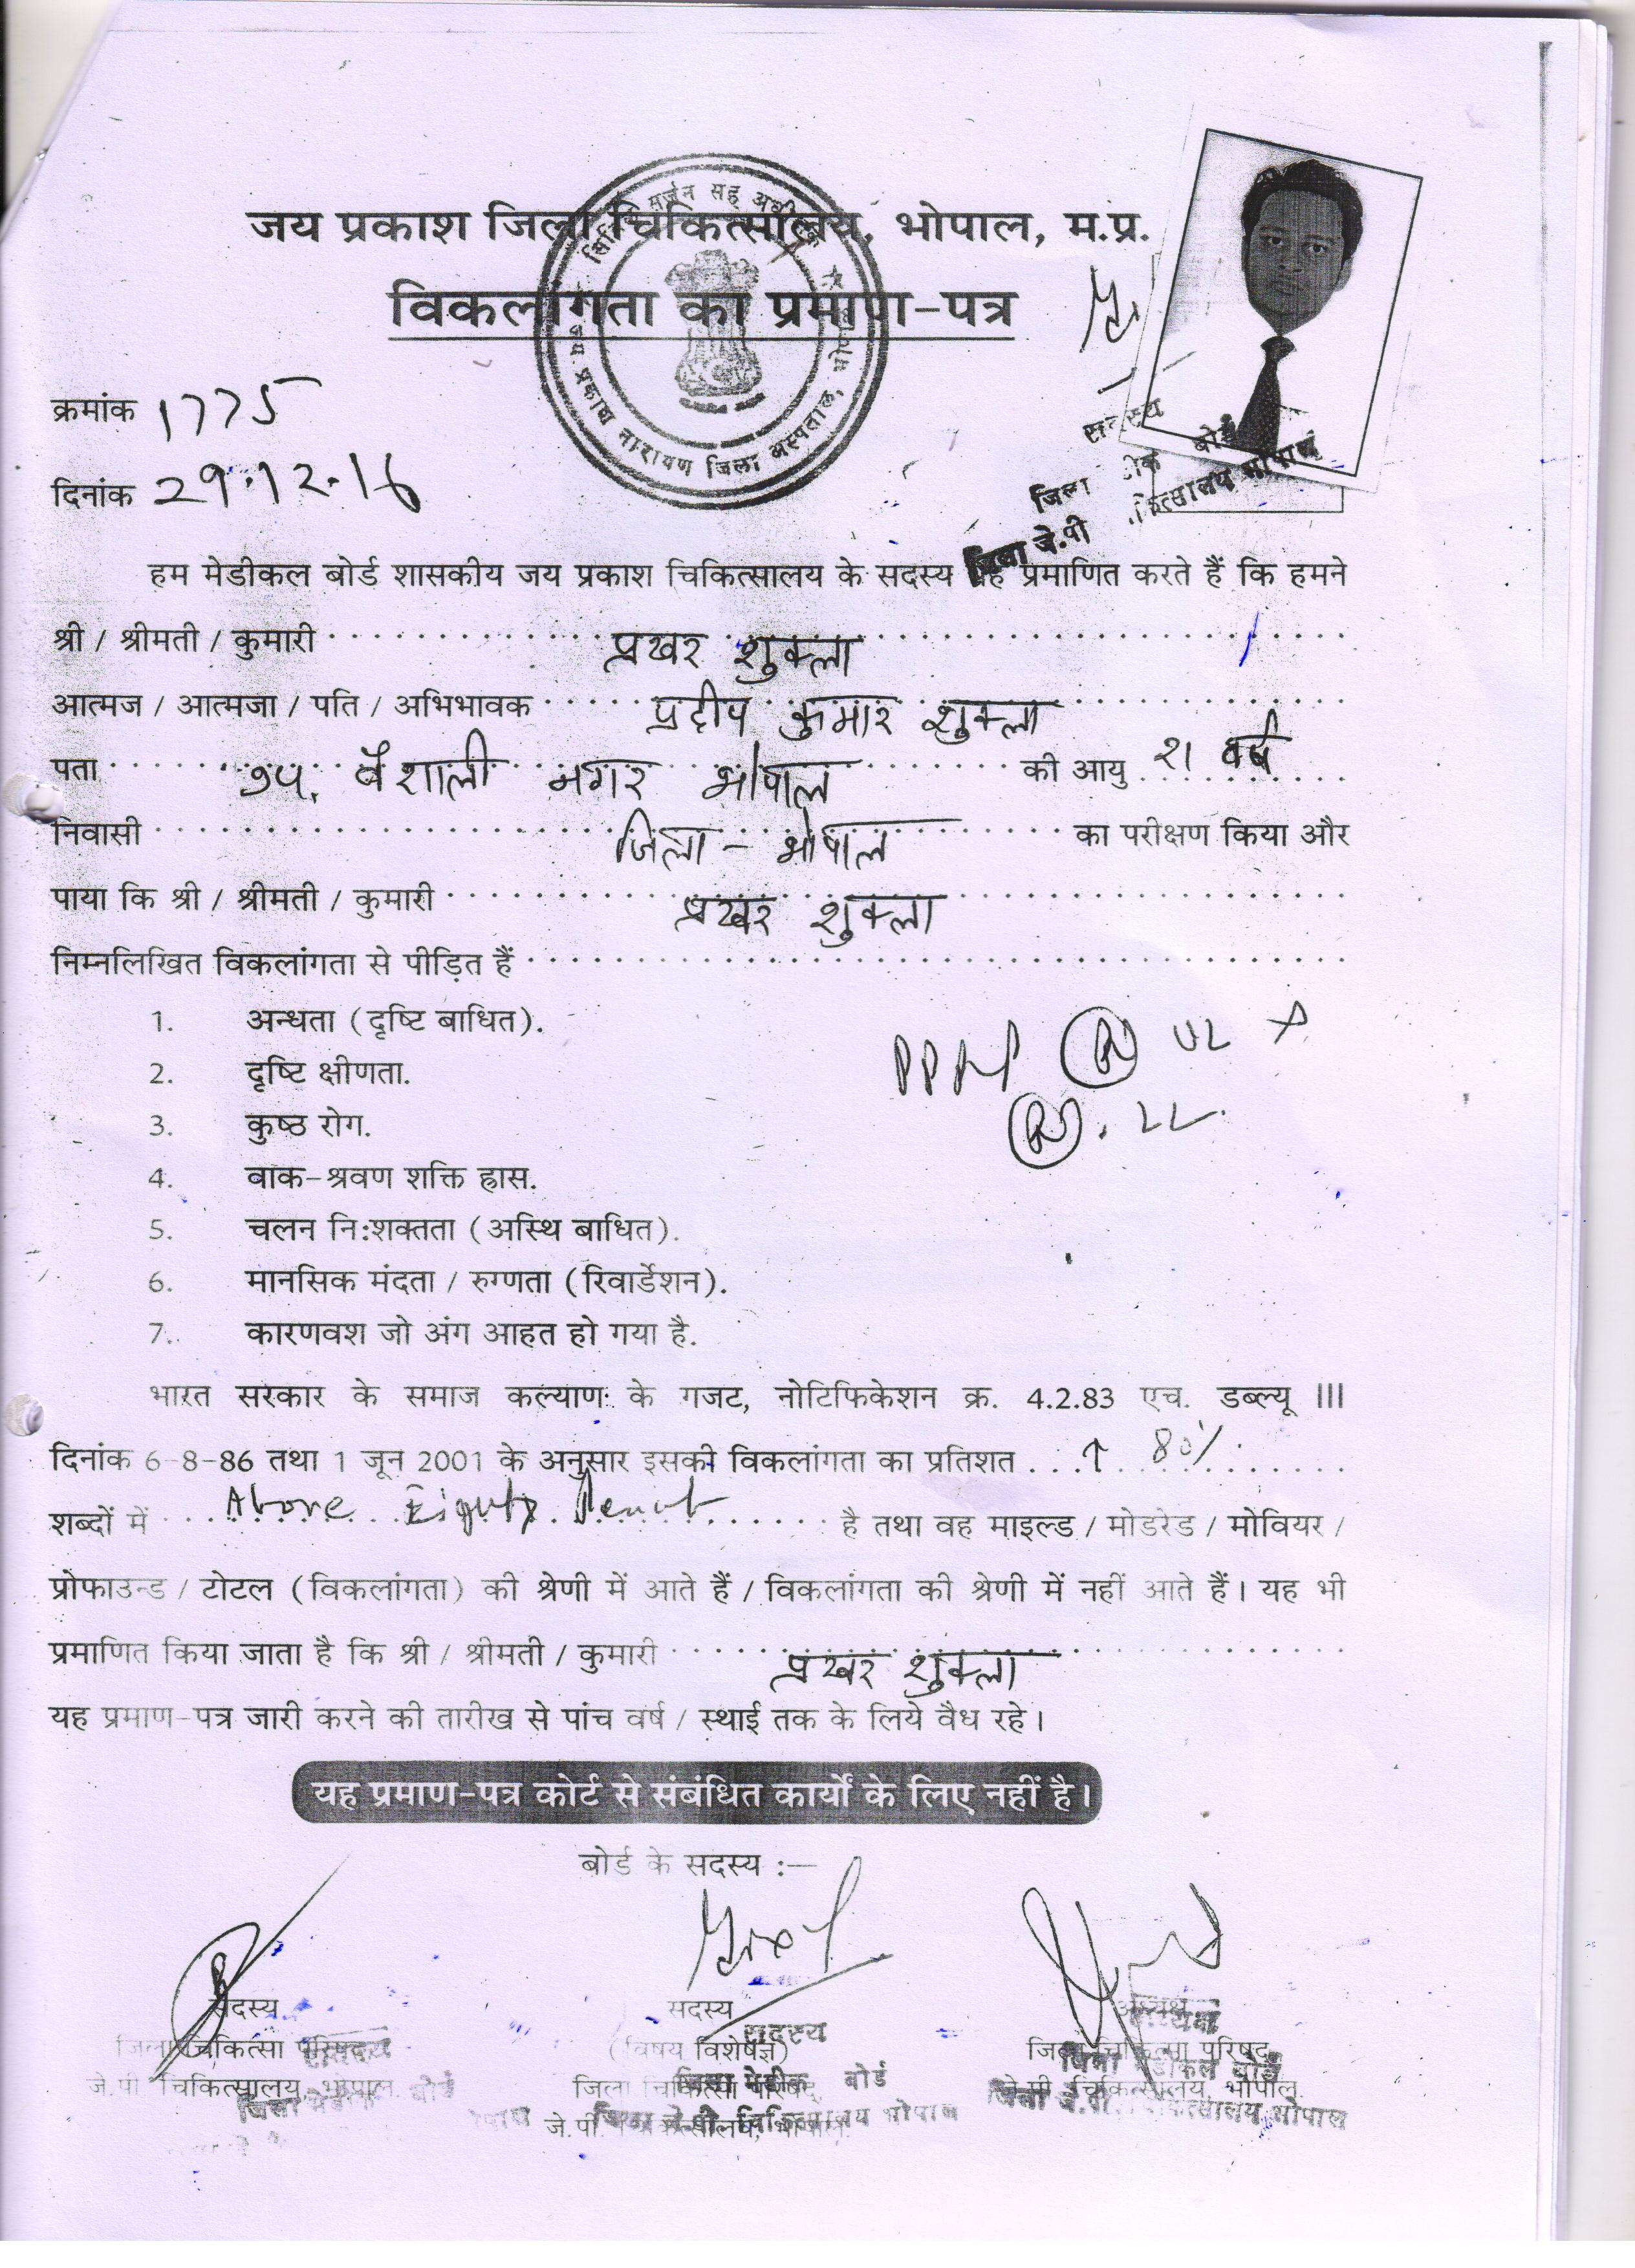 जय प्रकाश जिला चिकित्सालय, भोपाल, म.प्र.
विकलांगता का प्रमाण-पत्र
क्रमांक 1775
दिनांक 29.12.16
सदस्य
जिला बोर्ड
जिला जे.पी चिकित्सालय भोपाल
हम मेडीकल बोर्ड शासकीय जय प्रकाश चिकित्सालय के सदस्य यह प्रमाणित करते हैं कि हमने
श्री / श्रीमती / कुमारी प्रखर शुक्ला
आत्मज / आत्मजा / पति / अभिभावक प्रदीप कुमार शुक्ला
पता ७५, वैशाली नगर भोपाल की आयु २१ वर्ष
निवासी जिला - भोपाल का परीक्षण किया और
पाया कि श्री / श्रीमती / कुमारी प्रखर शुक्ला
निम्नलिखित विकलांगता से पीड़ित हैं
1. अन्धता (दृष्टि बाधित).
2. दृष्टि क्षीणता.
3. कुष्ठ रोग.
4. बाक-श्रवण शक्ति ह्रास.
5. चलन नि:शक्तता (अस्थि बाधित).
6. मानसिक मंदता / रुग्णता (रिवार्डेशन).
7. कारणवश जो अंग आहत हो गया है.
भारत सरकार के समाज कल्याण के गजट, नोटिफिकेशन क्र. 4.2.83 एच. डब्ल्यू III
दिनांक 6-8-86 तथा 1 जून 2001 के अनुसार इसकी विकलांगता का प्रतिशत ↑ 80%
शब्दों में Above Eighty है तथा वह माइल्ड / मोडरेड / मोवियर /
प्रोफाउन्ड / टोटल (विकलांगता) की श्रेणी में आते हैं / विकलांगता की श्रेणी में नहीं आते हैं। यह भी
प्रमाणित किया जाता है कि श्री / श्रीमती / कुमारी प्रखर शुक्ला
यह प्रमाण-पत्र जारी करने की तारीख से पांच वर्ष / स्थाई तक के लिये वैध रहे।
यह प्रमाण-पत्र कोर्ट से संबंधित कार्यों के लिए नहीं है।
बोर्ड के सदस्य :—
सदस्य सदस्य अध्यक्ष
जिला चिकित्सा परिषद (विषय विशेषज्ञ) जिला चिकित्सा परिषद
जे.पी. चिकित्सालय, भोपाल. जिला चिकित्सा परिषद् जे.पी. चिकित्सालय, भोपाल.
जे.पी. चिकित्सालय, भोपाल